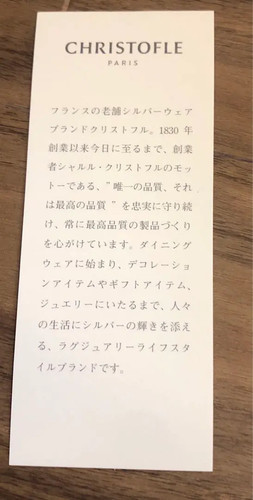 CHRISTOFLE
PARIS
フランスの老舗シルバーウェア
ブランドクリストフル。1830 年
創業以来今日に至るまで、創業
者シャルル・クリストフルのモッ
トーである、"唯一の品質、それ
は最高の品質 "を忠実に守り続
け、常に最高品質の製品づくり
を心がけています。ダイニング
ウェアに始まり、デコレーショ
ンアイテムやギフトアイテム、
ジュエリーにいたるまで、人々
の生活にシルバーの輝きを添え
る、ラグジュアリーライフスタ
イルブランドです。